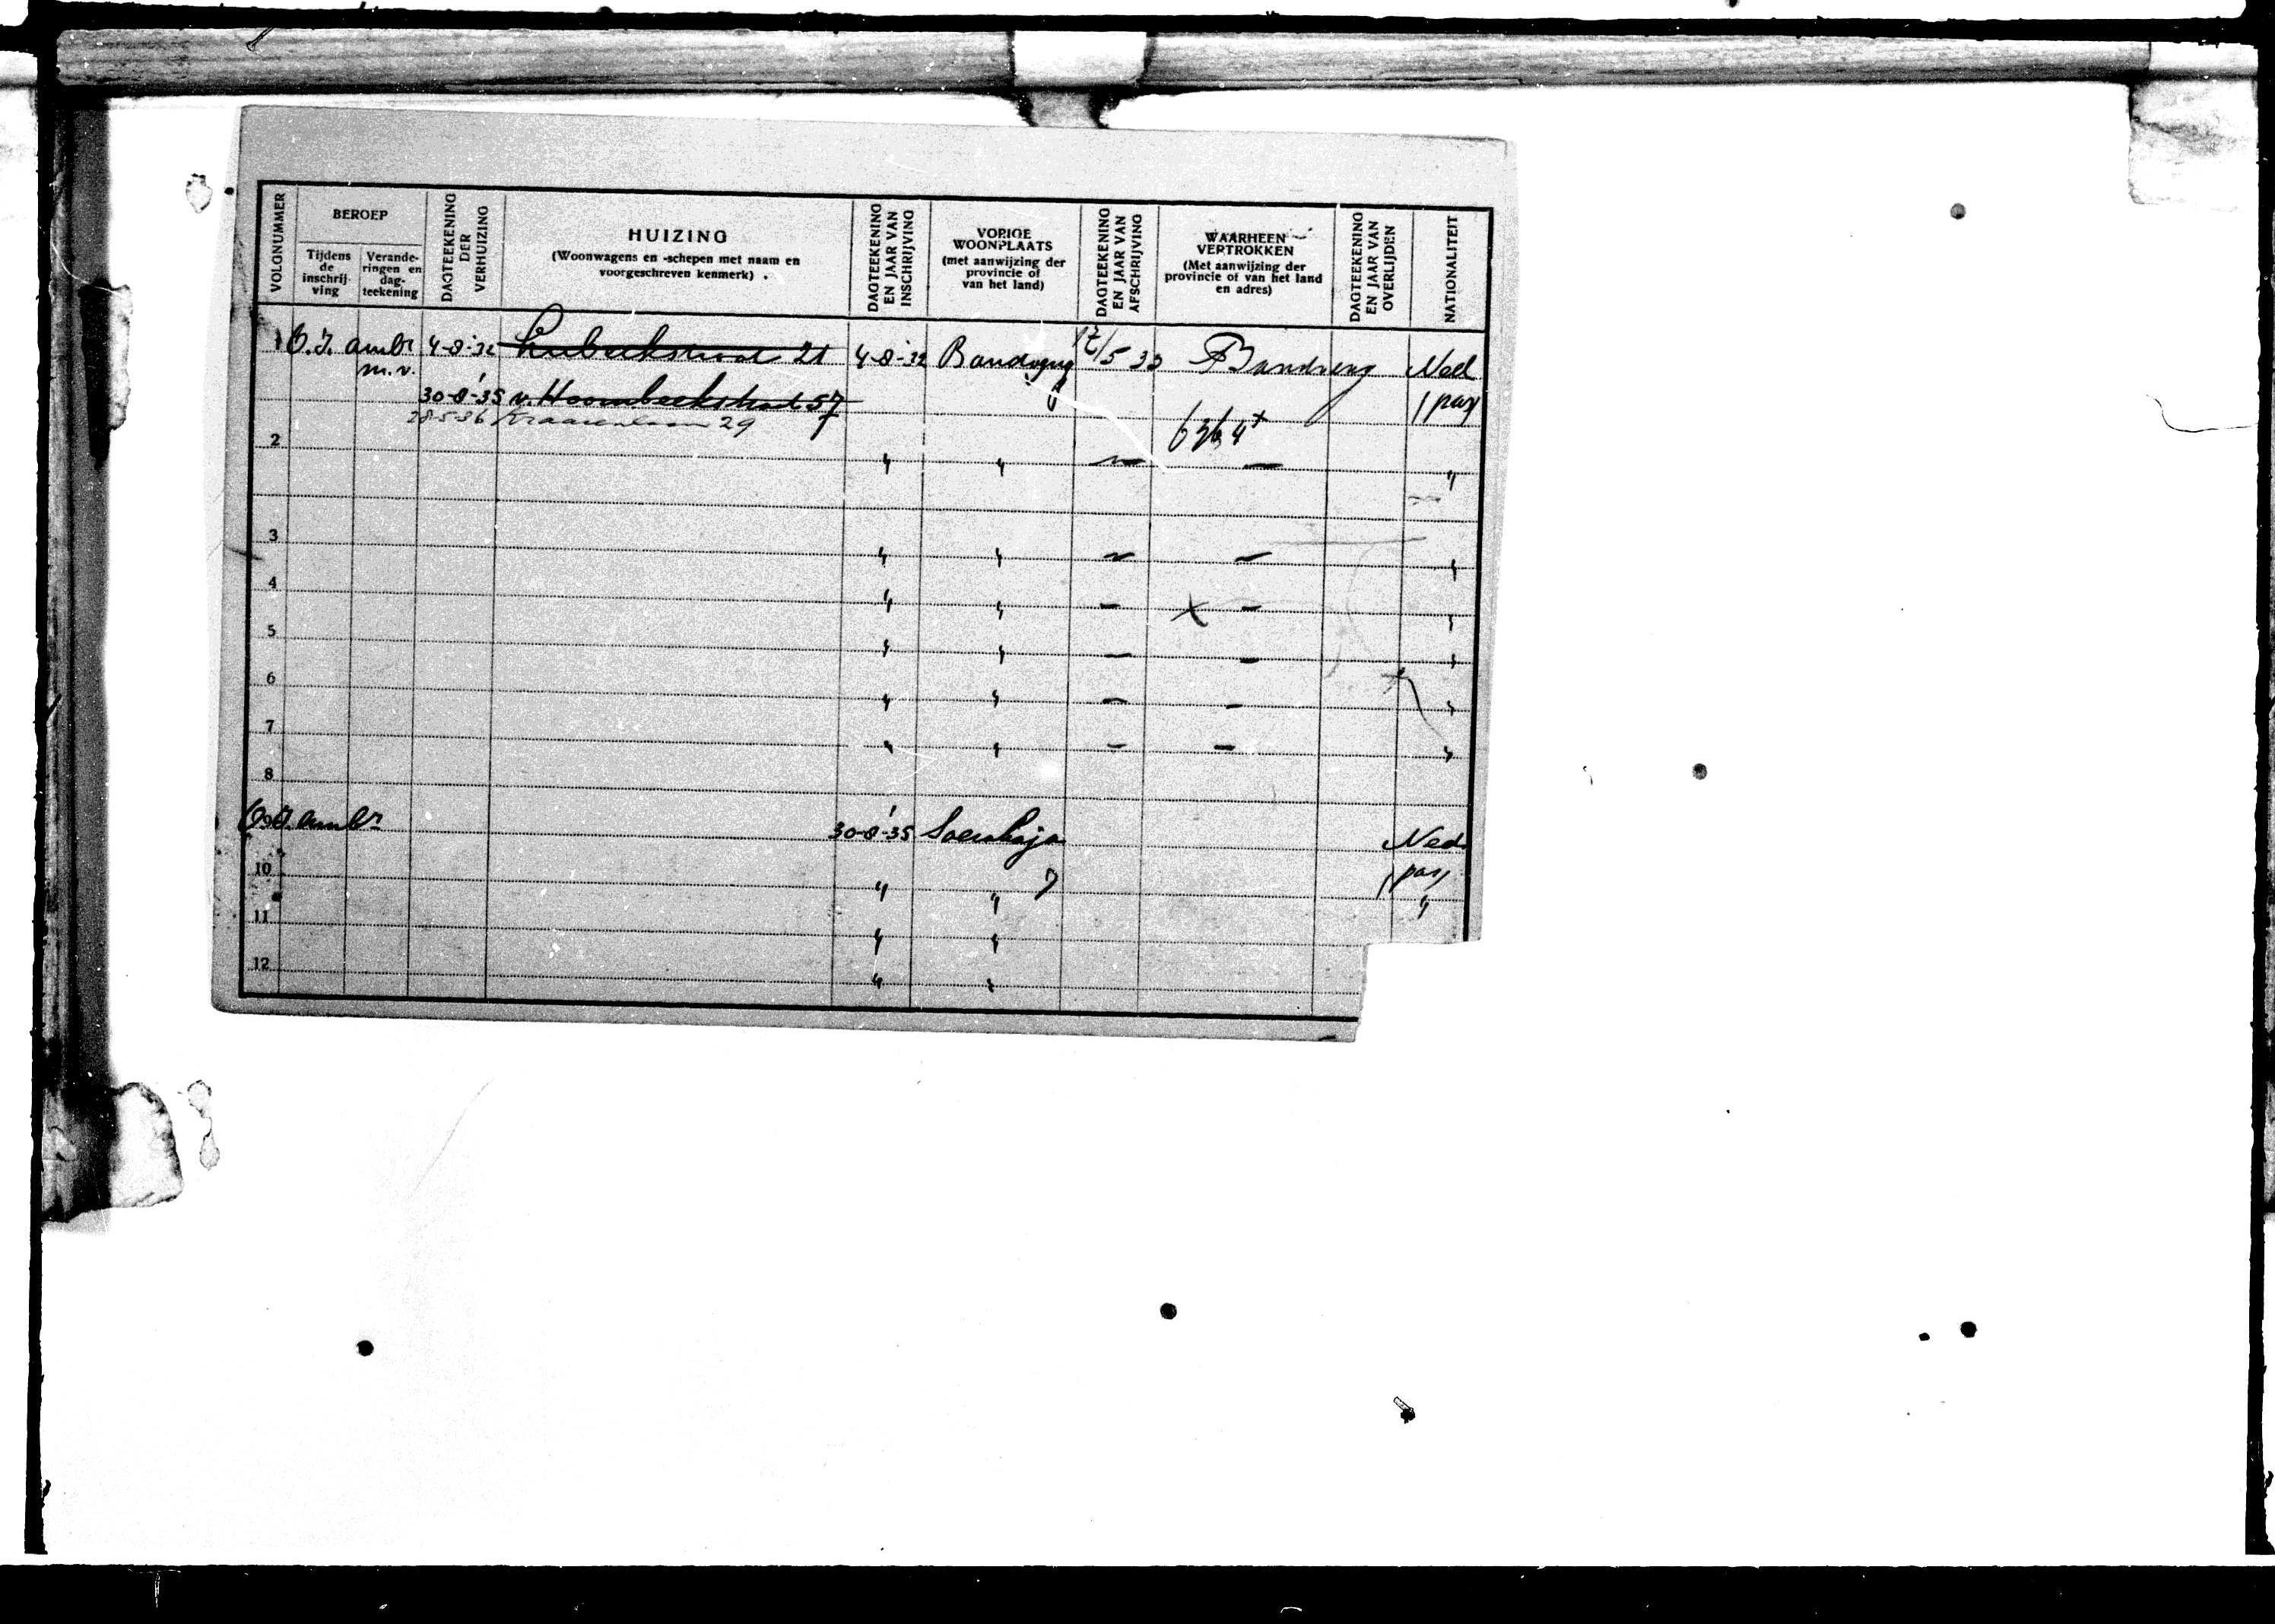 VOLGNUMMER
BEROEP
Tijdens de inschrij- ving
Verande- ringen en dag- teekening
DAGTEEKENING DER VERHUIZING
HUIZING
(Woonwagens en -schepen met naam en
voorgeschreven kenmerk).
DAGTEEKENING EN JAAR VAN INSCHRIJVING
VORIGE WOONPLAATS
(met aanwijzing der provincie of van het land)
DAGTEEKENING EN JAAR VAN AFSCHRIJVING
WAARHEEN VERTROKKEN
(Met aanwijzing der provincie of van het land en adres)
DAGTEEKENING EN JAAR VAN OVERLIJDEN
NATIONALITEIT
1 O.I. ambr 4-8-'32 21 4-8-'32 Bandoeng 17/5 33 Bandoeng Ned
m.v.
30-8-'35 v. Hoornbeekstraat 57 pas
28-5-36 29
2 " " — — "
3 " " — — "
4 " " — x — "
5 " " — — "
6 " " — — "
7 " " — — "
8
O.I. ambr 30-8-'35 Ned
pas
10 " " "
11 " "
12 " "